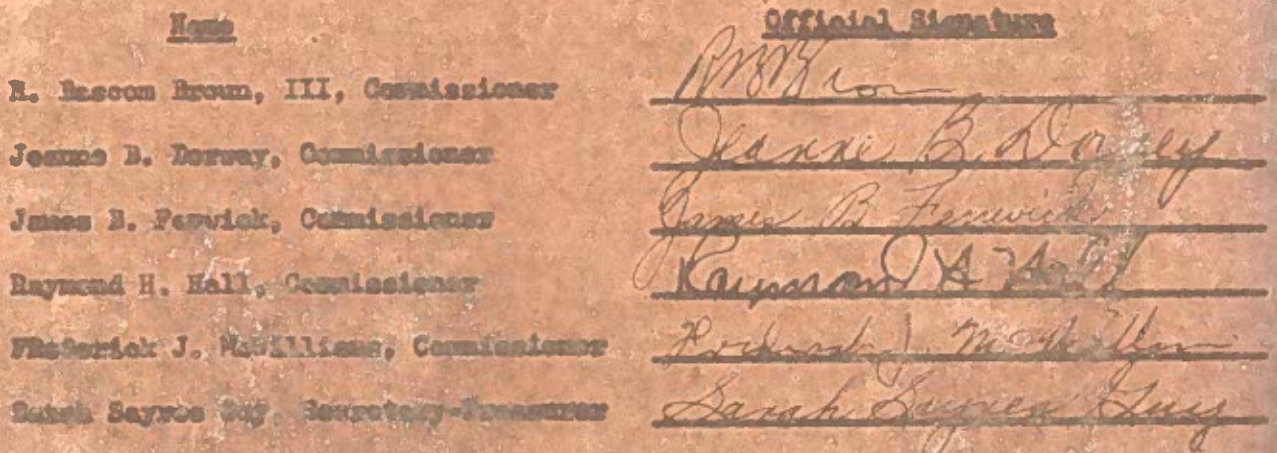 Name Official Signature
R. Bascom Broun, III, Commissioner RBBroun
Jeanne B. Dorsey, Commissioner Jeanne B. Dorsey
James B. Fenwick, Commissioner James B Fenwick
Raymond H. Hall, Commissioner Raymond H Hall
Frederick J. McWilliams, Commissioner Frederick J. McWilliams
Sarah Sayres Guy, Secretary-Treasurer Sarah Sayres Guy